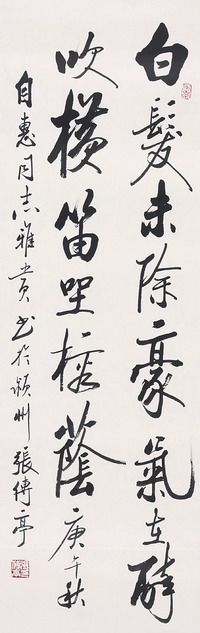 白髮未除豪氣在醉
吹橫笛坐榕蔭 庚午秋
自惠同志雅賞书於潁州張傳亭